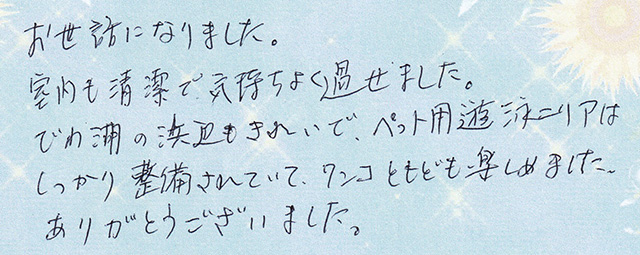 お世話になりました。
室内も清潔で気持ちよく過せました。
びわ湖の浜辺もきれいで、ペット用遊泳エリアは
しっかり整備されていて、ワンコともども楽しめました。
ありがとうございました。